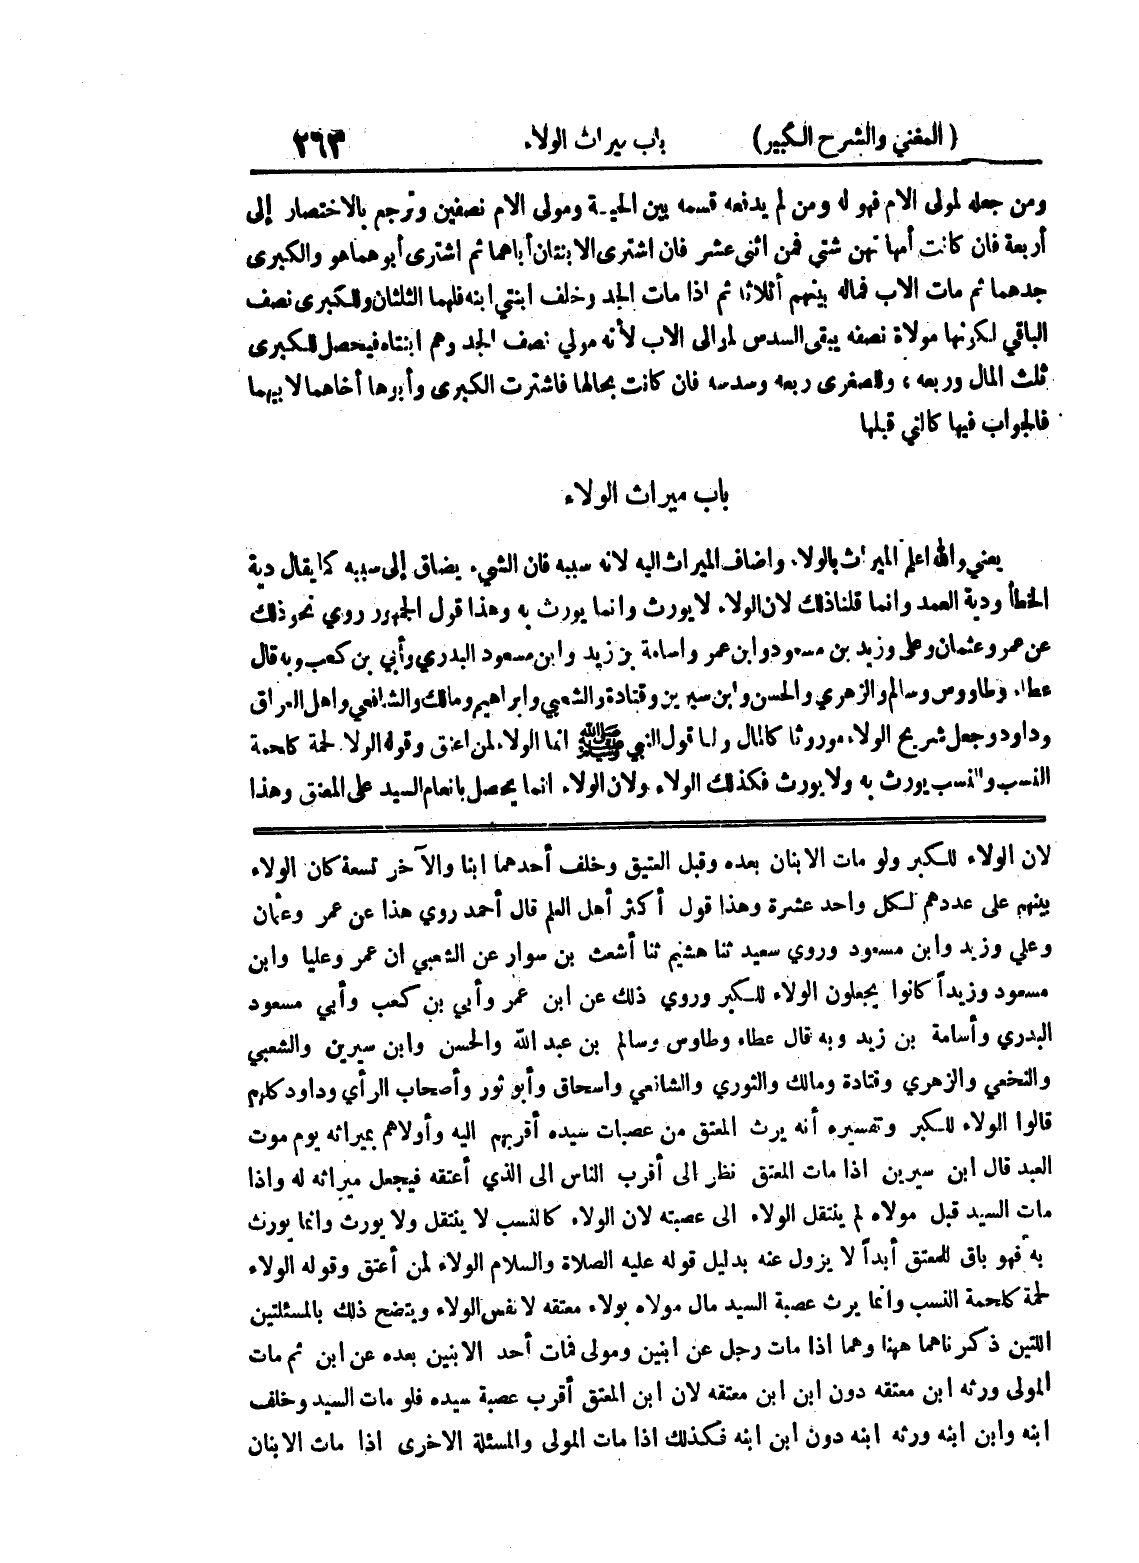 (المغني والشرح الكبير) باب ميراث الولاء ٢٦٣
ومن جعله لمولى الام فهو له ومن لم يدفعه قسمه بين الحية ومولى الام نصفين وترجع بالاختصار إلى
أربعة فان كانت أمها تهن شتي فمن اثني عشر فان اشترى الابنتان أباهما ثم اشترى أبوهما هو والكبرى
جدهما ثم مات الاب فماله بينهم أثلاثا ثم اذا مات الجد وخلف ابنتي ابنه فلهما الثلثان وللكبرى نصف
الباقي لكونها مولاة نصفه يبقى السدس لموالى الاب لأنه مولي نصف الجد وهم ابنتاه فيحصل للكبرى
ثلث المال وربعه ، وللصغرى ربعه وسدسه فان كانت بحالها فاشترت الكبرى وأبوها أخاهما لابيهما
فالجواب فيها كالتي قبلها
باب ميراث الولاء
يعني والله اعلم الميراث بالولاء واضاف الميراث اليه لانه سببه فان الشيء يضاق إلى سببه كما يقال دية
الخطأ ودية العمد وانما قلنا ذلك لان الولاء لا يورث وانما يورث به وهذا قول الجمهور روي نحو ذلك
عن عمر وعثمان وعلى وزيد بن مسعود وابن عمر واسامة بن زيد وابن مسعود البدري وأبي بن كعب وبه قال
عطاء وطاووس وسالم والزهري والحسن وابن سيرين وقتادة والشعبي وابراهيم ومالك والشافعي واهل العراق
وداود وجعل شريح الولاء موروثا كالمال ولنا قول النبي ﷺ انما الولاء لمن اعتق وقوله الولاء لحمة كلحمة
النسب والنسب يورث به ولا يورث فكذلك الولاء ولان الولاء انما يحصل بانعام السيد على المعتق وهذا
لان الولاء للكبر ولو مات الابنان بعده وقبل العتيق وخلف أحدهما ابنا والآخر تسعة كان الولاء
بينهم على عددهم لكل واحد عشرة وهذا قول أكثر أهل العلم قال أحمد روي هذا عن عمر وعثمان
وعلي وزيد وابن مسعود وروي سعيد ثنا هشيم ثنا أشعث بن سوار عن الشعبي ان عمر وعليا وابن
مسعود وزيداً كانوا يجعلون الولاء للكبر وروي ذلك عن ابن عمر وأبي بن كعب وأبي مسعود
البدري وأسامة بن زيد وبه قال عطاء وطاوس وسالم بن عبد الله والحسن وابن سيرين والشعبي
والنخعي والزهري وقتادة ومالك والثوري والشافعي واسحاق وأبو ثور وأصحاب الرأي وداود كلهم
قالوا الولاء للكبر وتفسيره أنه يرث المعتق من عصبات سيده أقربهم اليه وأولاهم بميراثه يوم موت
العبد قال ابن سيرين اذا مات المعتق نظر الى أقرب الناس الى الذي أعتقه فيجعل ميراثه له واذا
مات السيد قبل مولاه لم ينتقل الولاء الى عصبته لان الولاء كالنسب لا ينتقل ولا يورث وانما يورث
به فهو باق للمعتق أبداً لا يزول عنه بدليل قوله عليه الصلاة والسلام الولاء لمن أعتق وقوله الولاء
لحمة كلحمة النسب وانما يرث عصبة السيد مال مولاه بولاء معتقه لا نفس الولاء ويتضح ذلك بالمسئلتين
اللتين ذكرناهما ههنا وهما اذا مات رجل عن ابنين ومولى فمات أحد الابنين بعده عن ابن ثم مات
المولى ورثه ابن معتقه دون ابن ابن معتقه لان ابن المعتق أقرب عصبة سيده فلو مات السيد وخلف
ابنه وابن ابنه ورثه ابنه دون ابن ابنه فكذلك اذا مات المولى والمسئلة الاخرى اذا مات الابنان